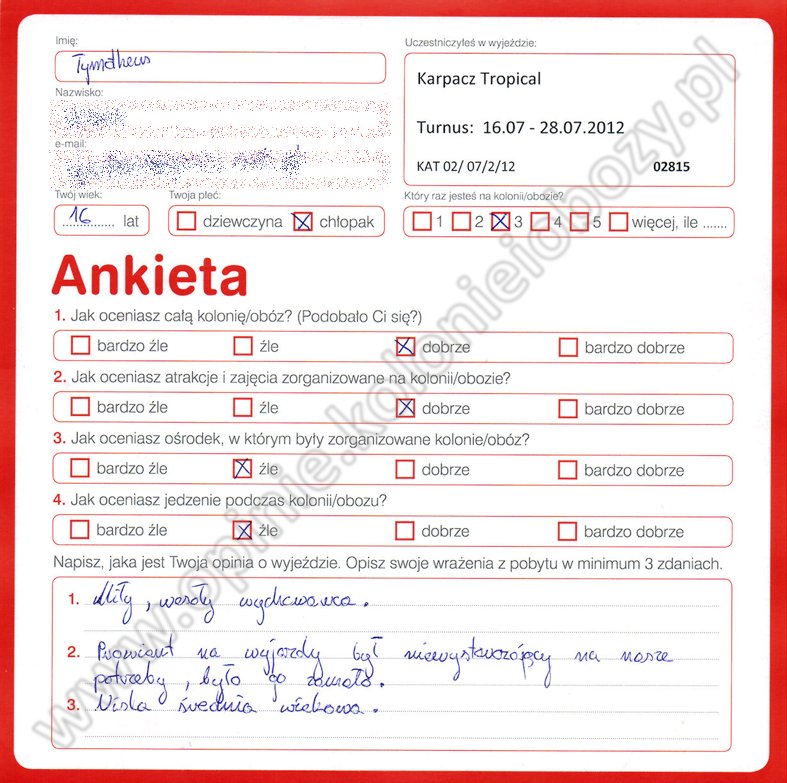 Imię:
Tymotheus
Uczestniczyłeś w wyjeździe:
Karpacz Tropical
Turnus: 16.07 - 28.07.2012
KAT 02/ 07/2/12 02815
Nazwisko:
e-mail:
Twój wiek:
16 lat
Twoja płeć:
dziewczyna chłopak
Który raz jesteś na kolonii/obozie?
1 2 3 4 5 więcej, ile .......
Ankieta
1. Jak oceniasz całą kolonię/obóz? (Podobało Ci się?)
bardzo źle źle dobrze bardzo dobrze
2. Jak oceniasz atrakcje i zajęcia zorganizowane na kolonii/obozie?
bardzo źle źle dobrze bardzo dobrze
3. Jak oceniasz ośrodek, w którym były zorganizowane kolonie/obóz?
bardzo źle źle dobrze bardzo dobrze
4. Jak oceniasz jedzenie podczas kolonii/obozu?
bardzo źle źle dobrze bardzo dobrze
Napisz, jaka jest Twoja opinia o wyjeździe. Opisz swoje wrażenia z pobytu w minimum 3 zdaniach.
1. Miły, wesoły wychowawca.
2. Prowiant na wyjazdy był niewystarczający na nasze
potrzeby, było go zamało.
3. Niska średnia wiekowa.
www.opinie.kolonieiobozy.pl